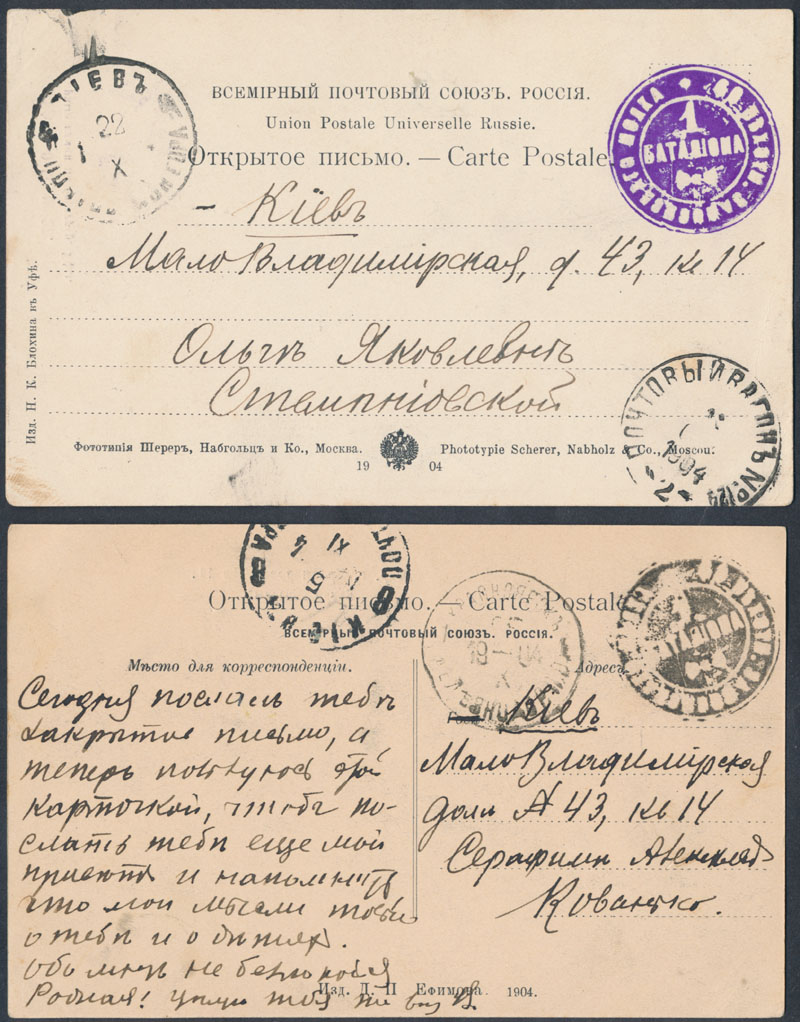 КІЕВЪ
22
X
ВСЕМІРНЫЙ ПОЧТОВЫЙ СОЮЗЪ. РОССІЯ.
Union Postale Universelle Russie.
Открытое письмо. — Carte Postale.
1
БАТАЛІОНА
ПОЛКА
– Кіевъ
МалоВладимірская, д. 43, кв 14
Ольгѣ Яковлевнѣ
Изд. Н. К. Блохина въ Уфѣ.
Фототипія Шереръ, Набгольцъ и Ко., Москва.
Phototypie Scherer, Nabholz & Co., Moscou.
19 04
ПОЧТОВЫЙ ВАГОНЪ №124
1904
2
КІЕВЪ
XI
Открытое письмо. — Carte Postale
ВСЕМІРНЫЙ ПОЧТОВЫЙ СОЮЗЪ. РОССІЯ.
Мѣсто для корреспонденціи.
Адресъ
04
X
1
БАТАЛІОНА
Сегодня послалъ тебѣ
закрытое письмо, а
теперь пользуюсь этой
карточкой, чтобы по-
слать тебѣ еще мой
приветъ и напомнить
что мои мысли только
о тебѣ и о дѣтяхъ.
Обо мнѣ не безпокойся
Родная! цѣлую тебя
Кіевъ
МалоВладимірская
домъ № 43, кв 14
Серафимѣ
Кованько.
Изд. Д. П Ефимова 1904.